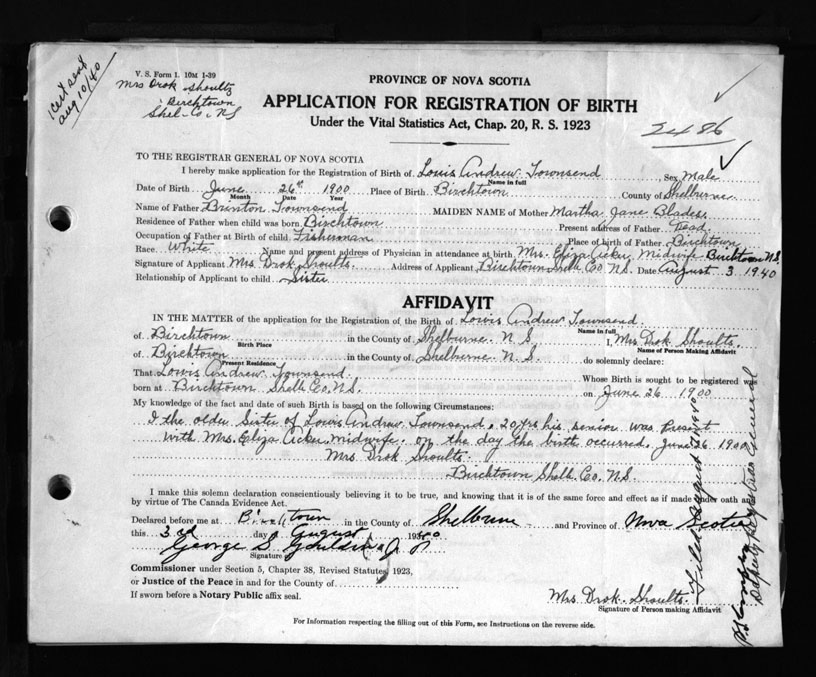 1 cert sent
aug 10/40
V. S. Form 1. 10M 1-39
Mrs Drok Shoultz
Birchtown
Shel. Co. N.S
PROVINCE OF NOVA SCOTIA
APPLICATION FOR REGISTRATION OF BIRTH
Under the Vital Statistics Act, Chap. 20, R. S. 1923
2486
TO THE REGISTRAR GENERAL OF NOVA SCOTIA
I hereby make application for the Registration of Birth of Louis Andrew Townsend Sex Male
Name in full
Date of Birth June 26th 1900 Place of Birth Birchtown County of Shelburne
Month Date Year
Name of Father Brinton Townsend MAIDEN NAME of Mother Martha Jane Blades
Residence of Father when child was born Birchtown Present address of Father Dead
Occupation of Father at Birth of child Fisherman Place of birth of Father Birchtown
Race White Name and present address of Physician in attendance at birth Mrs. Eliza Acker, Midwife Birchtown N.S.
Signature of Applicant Mrs Drok Shoults. Address of Applicant Birchtown Shelb Co. N.S. Date August 3 1940
Relationship of Applicant to child Sister
AFFIDAVIT
IN THE MATTER of the application for the Registration of the Birth of Louis Andrew Townsend
Name in full
of Birchtown in the County of Shelburne N.S. I, Mrs Drok Shoults
Birth Place Name of Person Making Affidavit
of Birchtown in the County of Shelburne N.S. do solemnly declare:
Present Residence
That Louis Andrew Townsend Whose Birth is sought to be registered was
born at Birchtown Shelb Co. N.S. on June 26 1900
My knowledge of the fact and date of such Birth is based on the following Circumstances:
I the older Sister of Louis Andrew Townsend, 20 yrs his senior was present
with Mrs. Eliza Acker, Midwife. on the day the birth occurred, June 26 1900
Mrs Drok Shoults.
Birchtown Shelb. Co. N.S.
I make this solemn declaration conscientiously believing it to be true, and knowing that it is of the same force and effect as if made under oath and
by virtue of The Canada Evidence Act.
Declared before me at Birchtown in the County of Shelburne and Province of Nova Scotia
this 3rd day of August 1940
George S. Goulding J P
Signature
Commissioner under Section 5, Chapter 38, Revised Statutes, 1923,
or Justice of the Peace in and for the County of
If sworn before a Notary Public affix seal.
Mrs Drok Shoults.
Signature of Person making Affidavit
For Information respecting the filling out of this Form, see Instructions on the reverse side.
Filed August
Deputy Registrar General